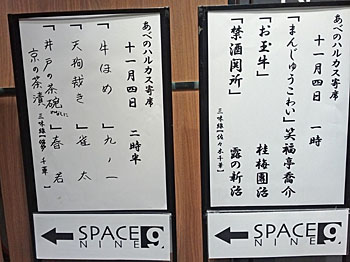 あべのハルカス寄席
十一月四日　一時
「まんじゅうこわい」笑福亭喬介
「お玉牛」　桂梅團治
「禁酒関所」　露の新治
三味線【佐々木千華】
SPACE
NINE 9
あべのハルカス寄席
十一月四日　二時半
「牛ほめ」九ノ一
「天狗裁き」雀太
「井戸の茶碗」春若
京の茶漬
SPACE
NINE 9